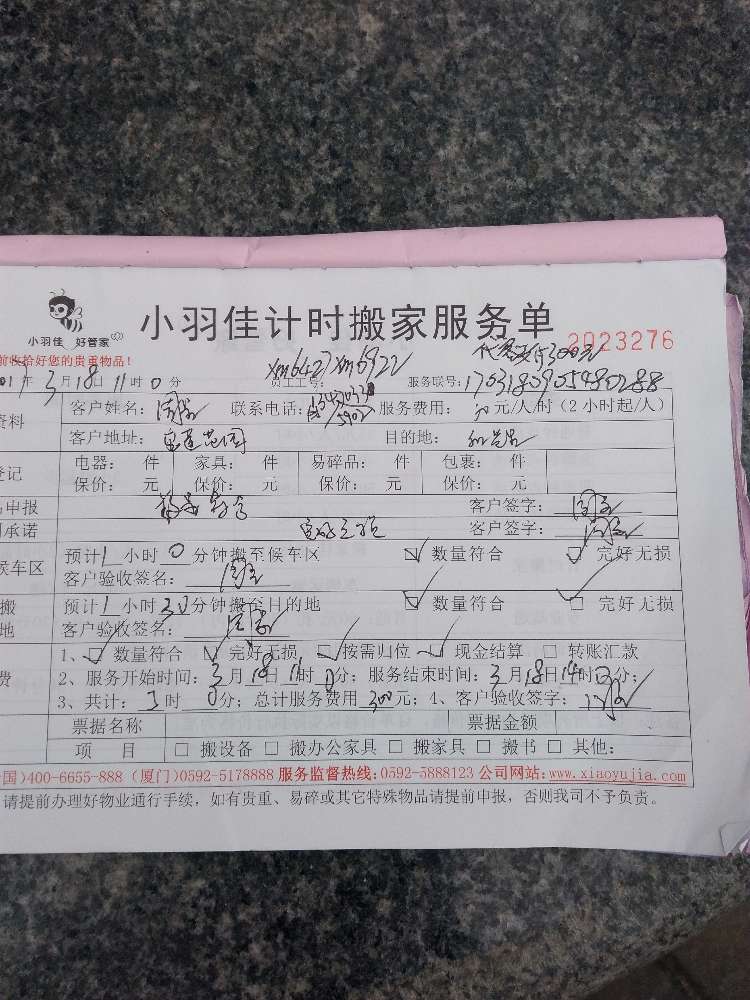 小羽佳 好管家
小羽佳计时搬家服务单
2023276
前收拾好您的贵重物品！
xm6427xm6922
300元
年3月18日11时0分 员工工号： 服务联号：1703180905480288
资料 客户姓名： 联系电话： 5902 服务费用： 元/人/时（2小时起/人）
客户地址： 目的地：
登记 电器： 件 家具： 件 易碎品： 件 包裹： 件
保价： 元 保价： 元 保价： 元 保价： 元
申报 客户签字：
承诺 客户签字：
候车区 预计1小时0分钟搬至候车区 数量符合 完好无损
客户验收签名：
搬 预计1小时20分钟搬至目的地 数量符合 完好无损
地 客户验收签名：
1、 数量符合 完好无损 按需归位 现金结算 转账汇款
费 2、服务开始时间：3月18日11时0分；服务结束时间：3月18日14时0分；
3、共计：3时0分；总计服务费用300元；4、客户验收签字：
票据名称 票据金额
项 目 □ 搬设备 □ 搬办公家具 □ 搬家具 □ 搬书 □ 其他：
国)400-6655-888 (厦门)0592-5178888 服务监督热线:0592-5888123 公司网站:www.xiaoyujia.com
请提前办理好物业通行手续，如有贵重、易碎或其它特殊物品请提前申报，否则我司不予负责。